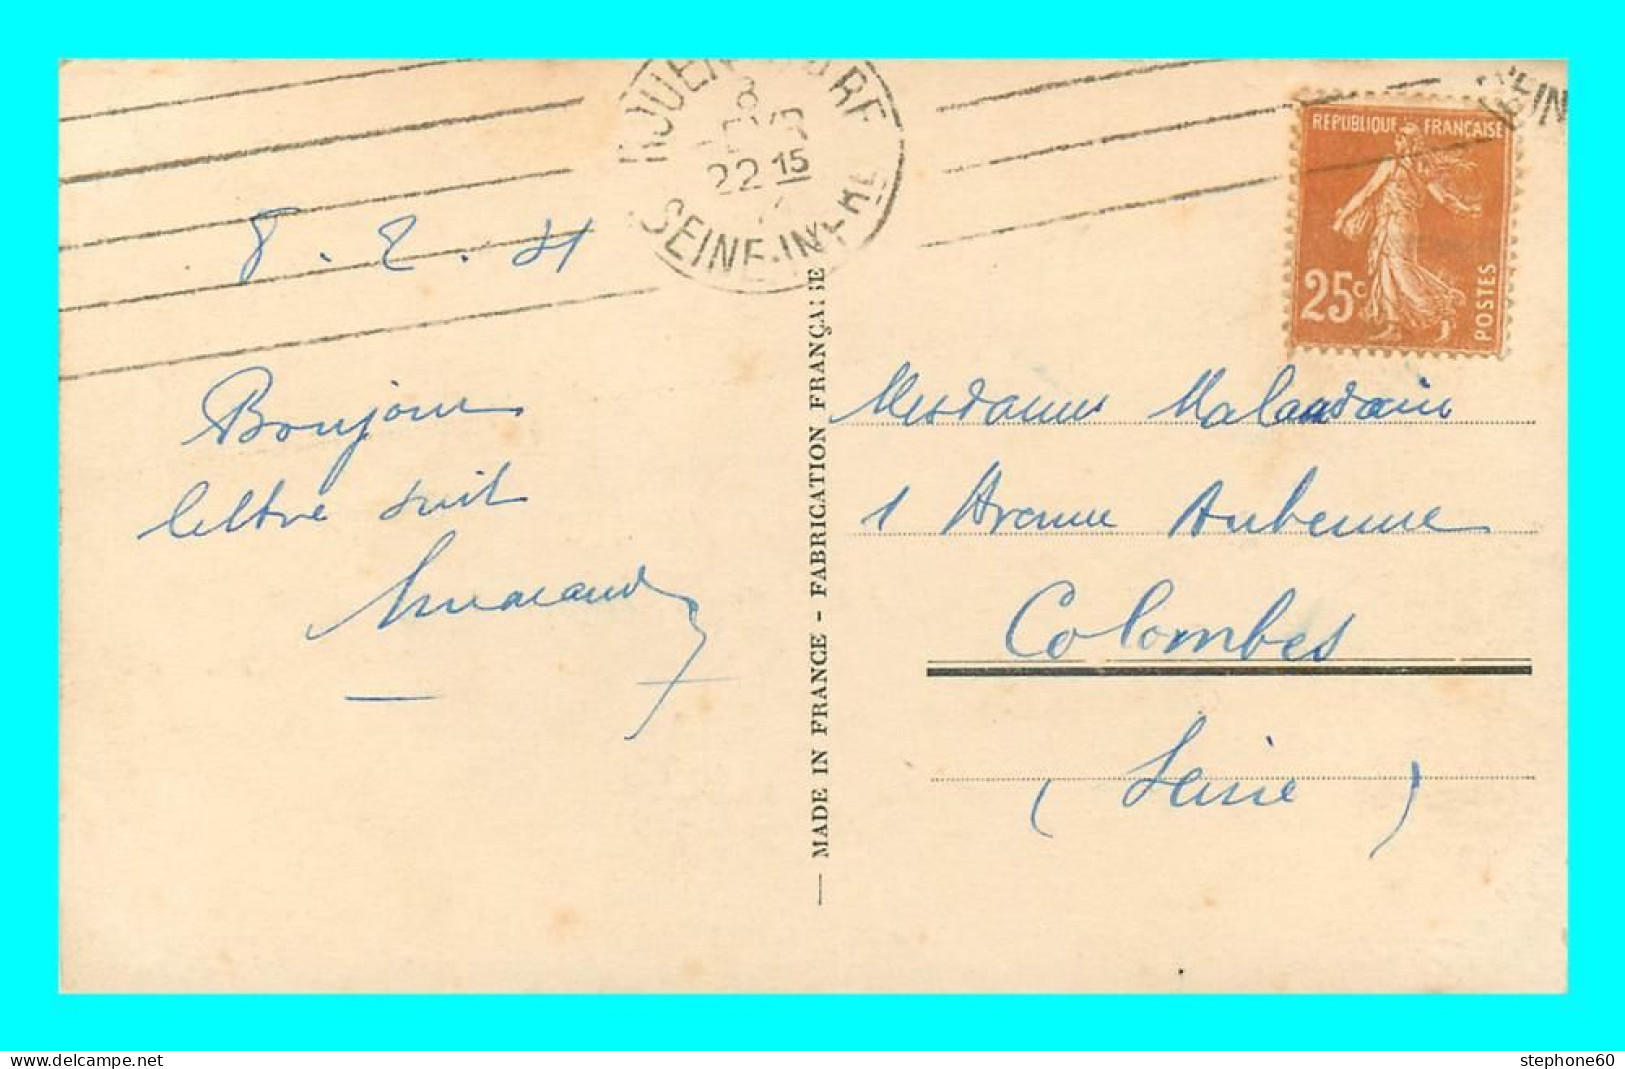 ROUEN GARE
8
22 15
SEINE-INFRE
RÉPUBLIQUE FRANÇAISE
25c
POSTES
8.2.41
Bonjour
lettre suit
MADE IN FRANCE - FABRICATION FRANÇAISE
Mesdames Malandain
1 Avenue Aubenne
Colombes
(Seine)
stephone60